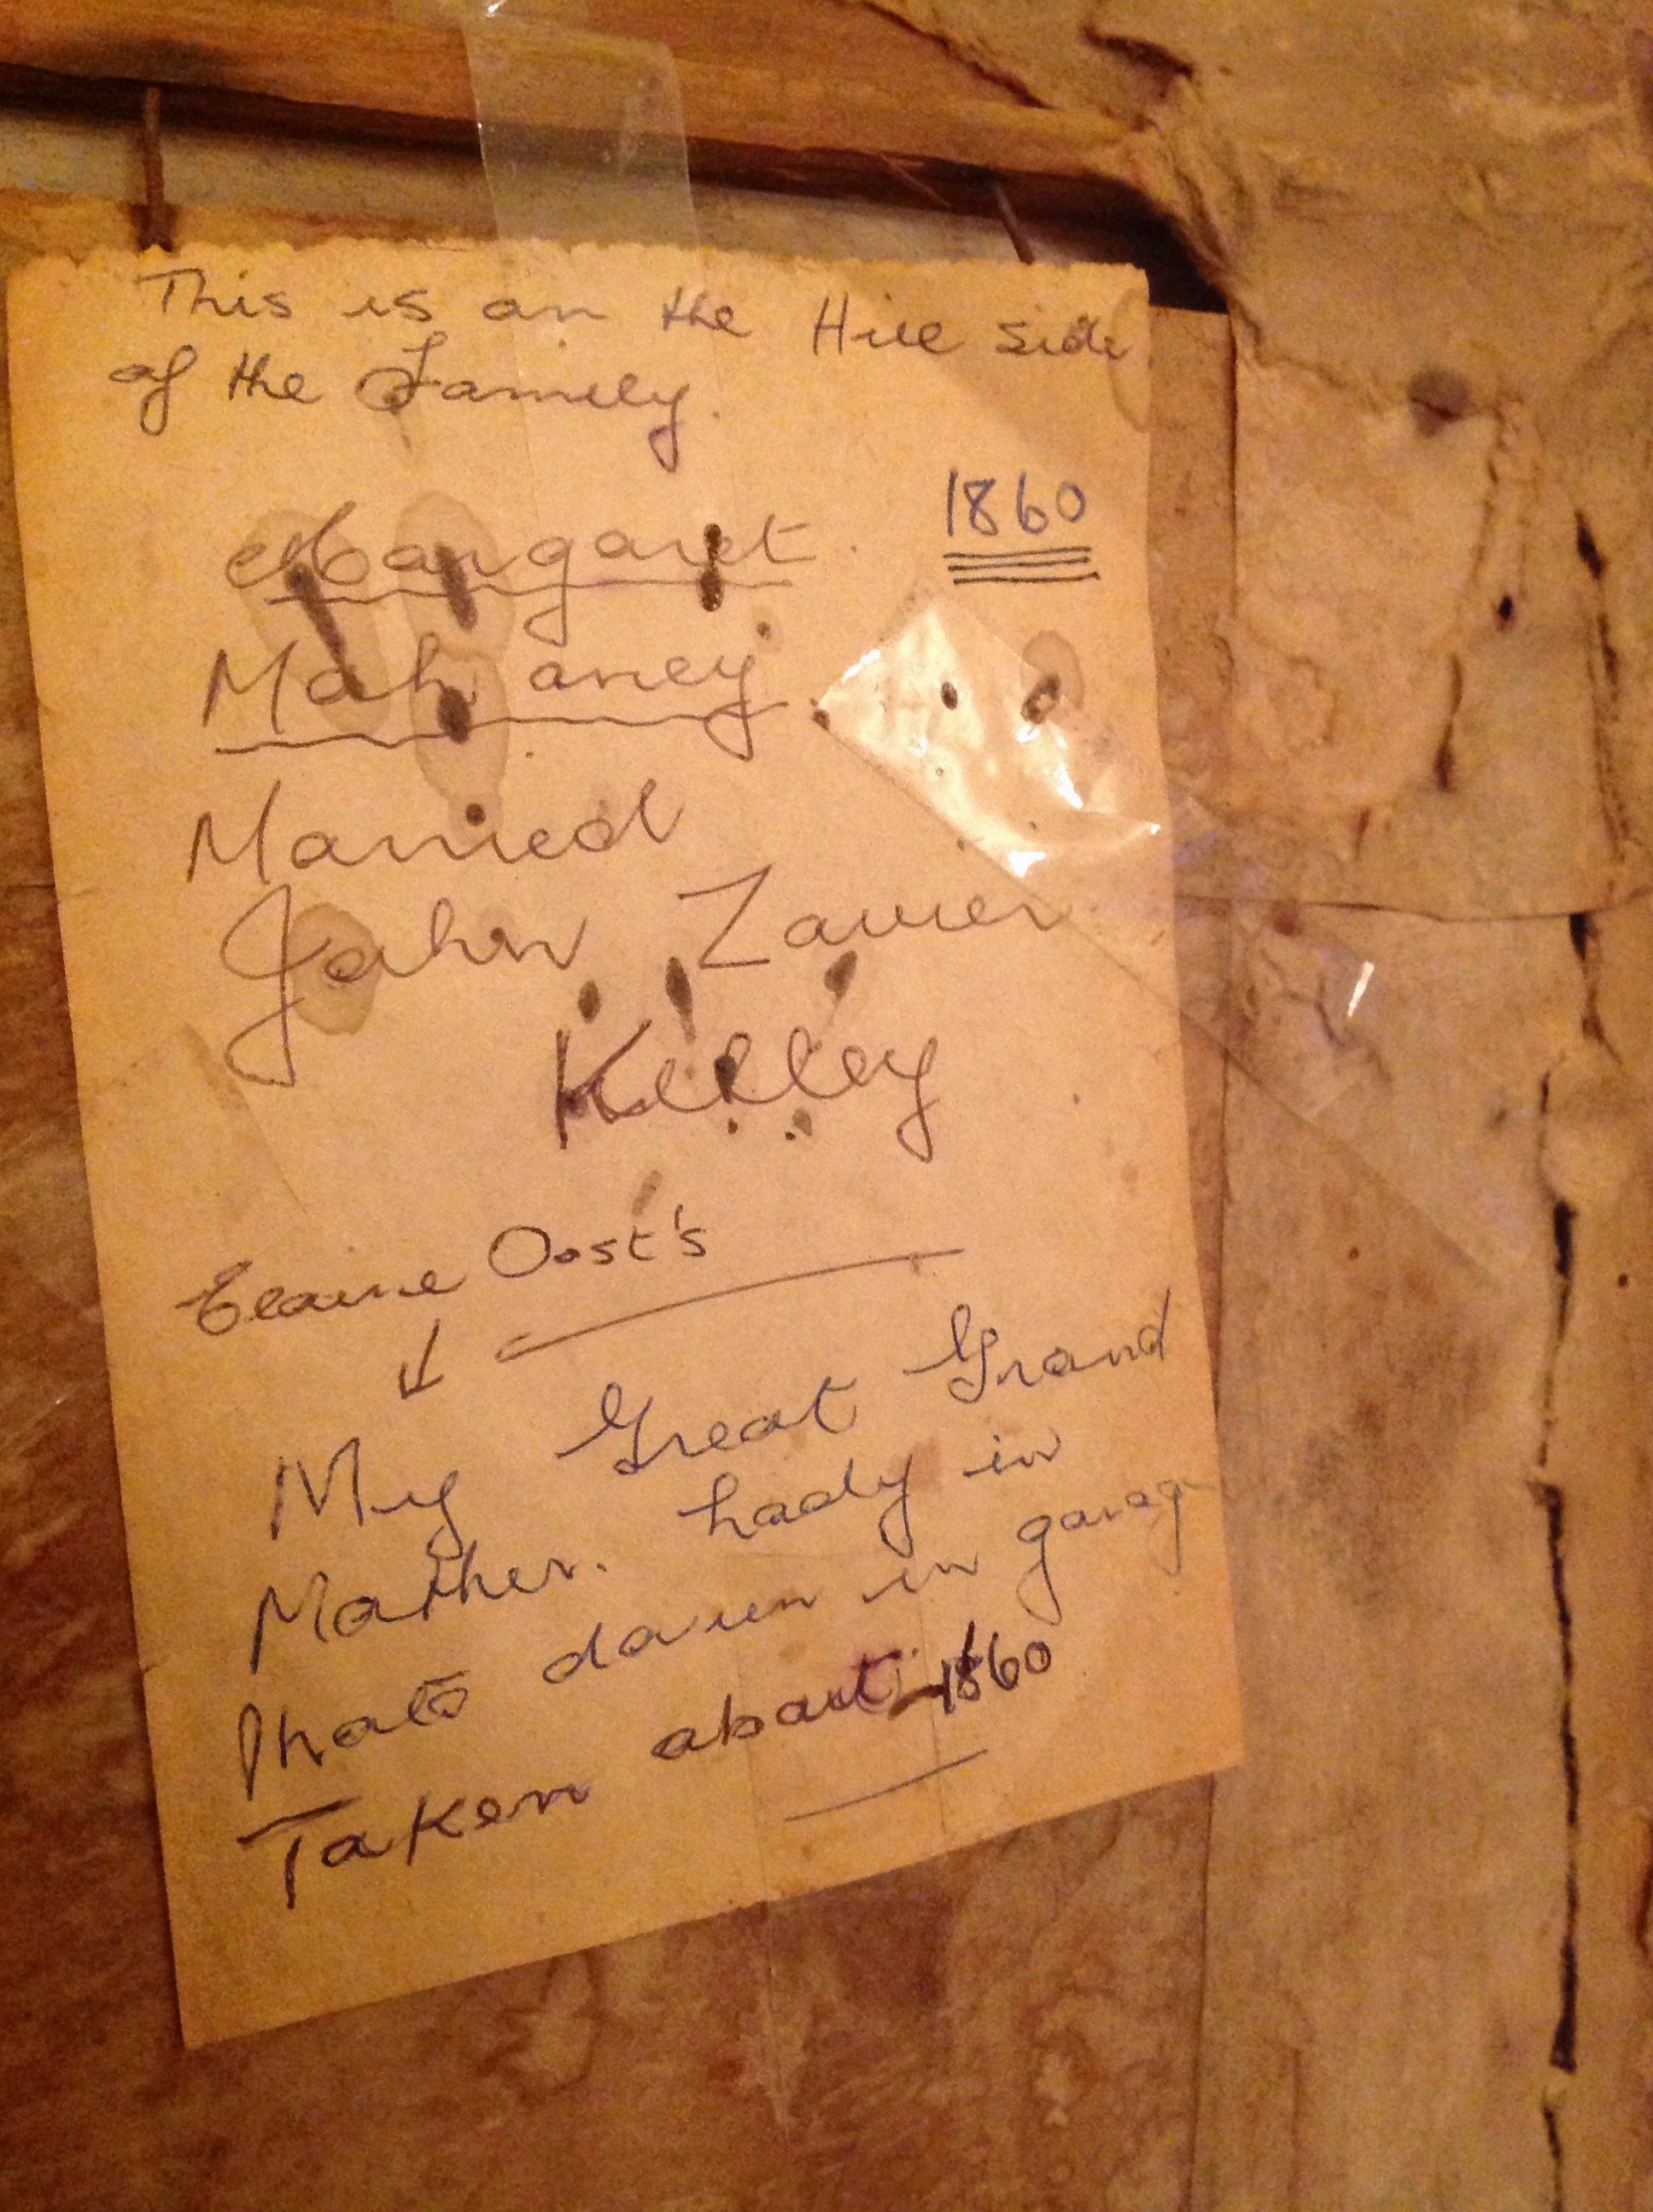 This is on the Hill side
of the Family.
1860
Margaret
Mahoney
Married
John Zavier
Kelley
Elaine Oost's
My Great Grand
Mother. Lady in
Photo down in garage
Taken about 1860